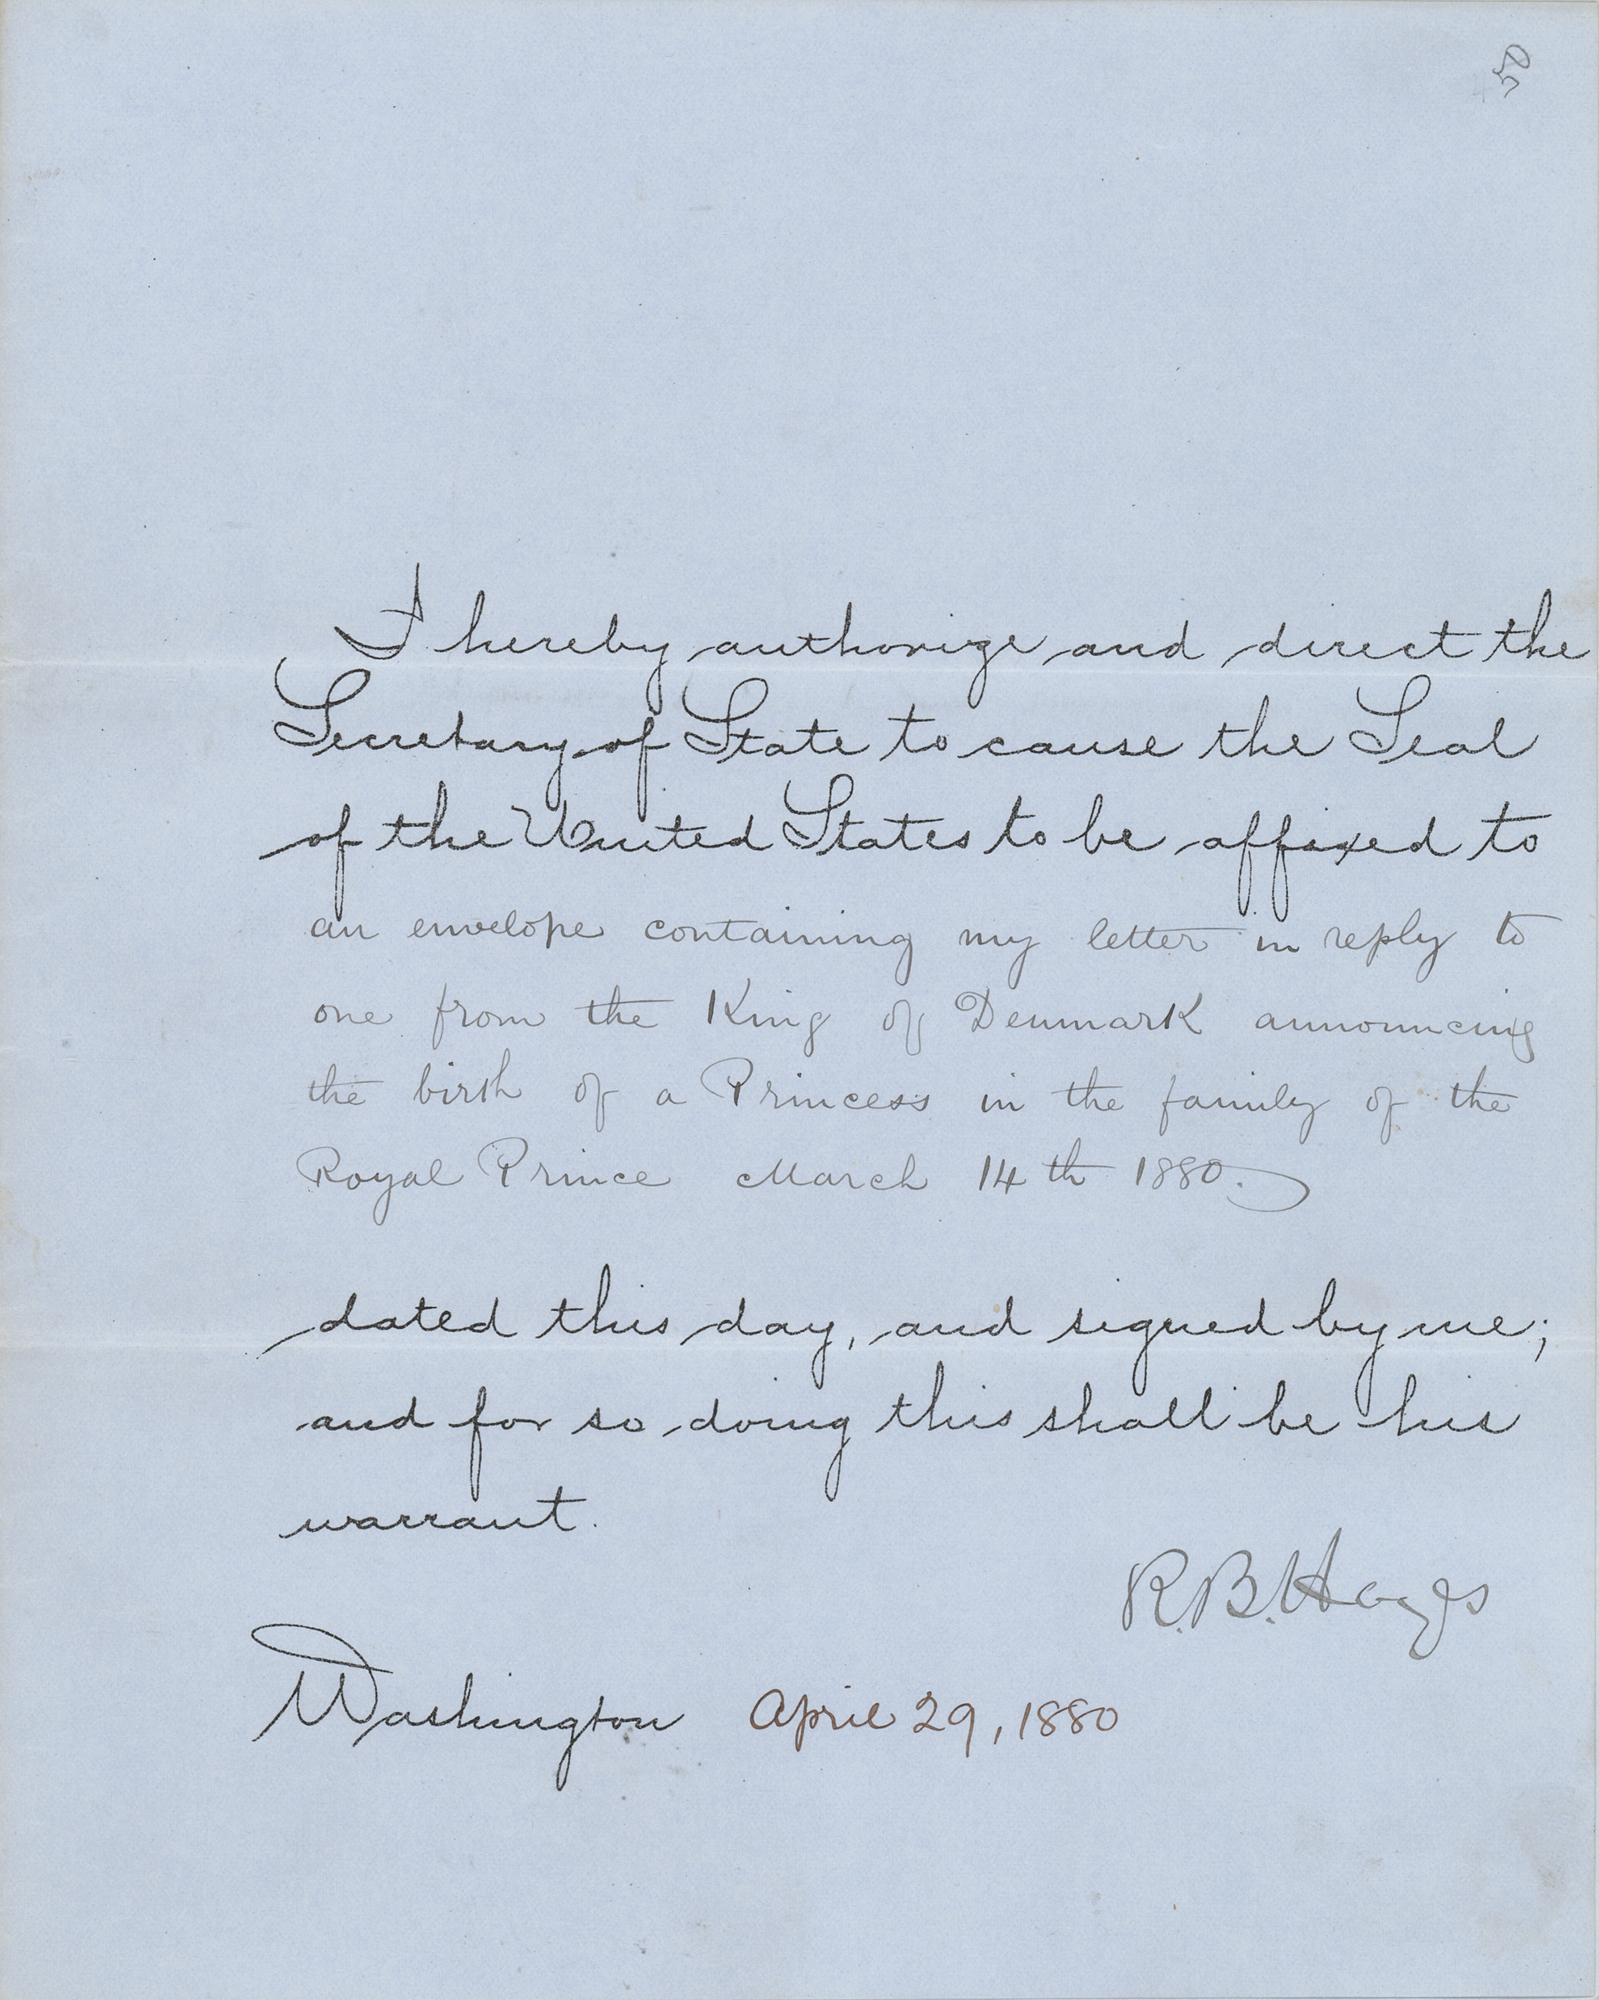 50
I hereby authorize and direct the
Secretary of State to cause the Seal
of the United States to be affixed to
an envelope containing my letter in reply to
one from the King of Denmark announcing
the birth of a Princess in the family of the
Royal Prince March 14th 1880.
dated this day, and signed by me;
and for so doing this shall be his
warrant.
R. B. Hayes
Washington April 29, 1880